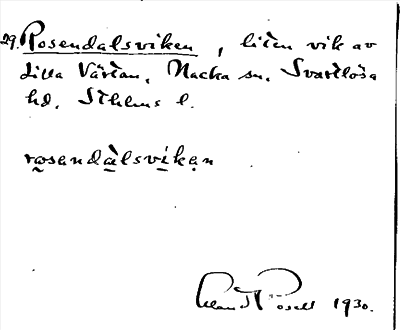 29. Rosendalsviken, liten vik av
Lilla Värtan, Nacka sn, Svartlösa
hd, Sthlms l.
rosendàlsvikạn
1930.